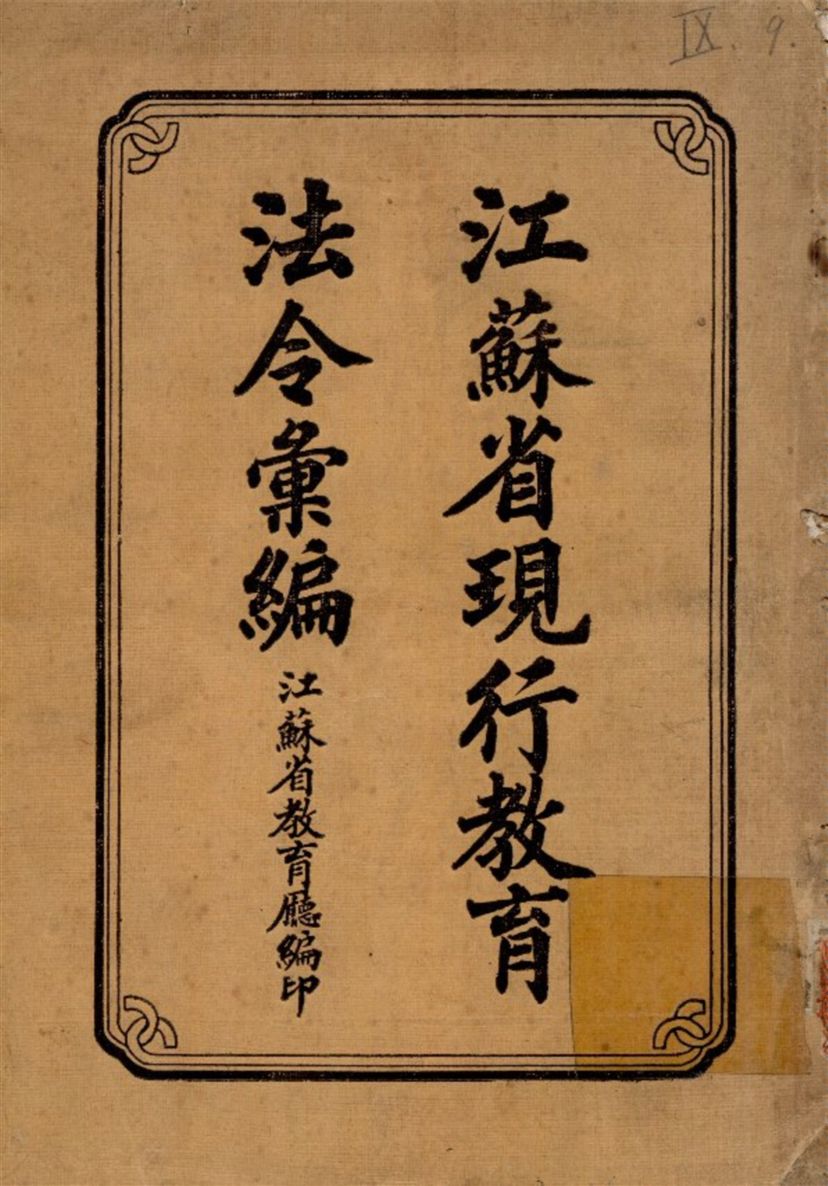 IX. 9.
江蘇省現行教育
法令彙編
江蘇省教育廳編印